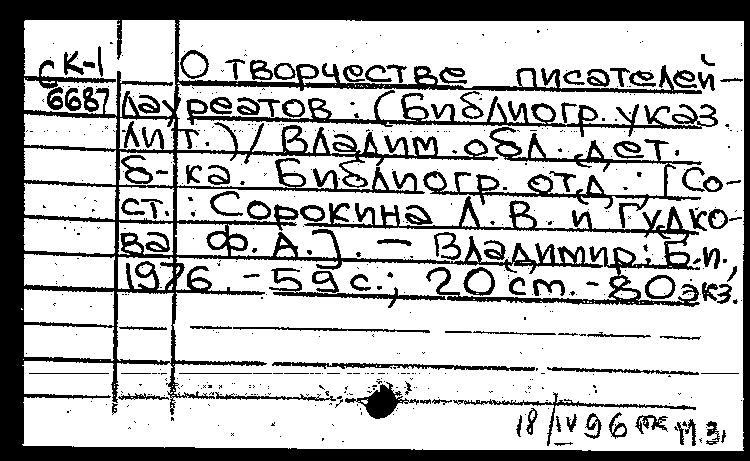 СК-1 О творчестве писателей-
6687 лауреатов : (Библиогр. указ.
лит.) / Владим. обл. дет.
б-ка. Библиогр. отд. ; [Со-
ст. : Сорокина Л. В. и Гудко-
ва Ф. А.]. — Владимир : Б.и.,
1976. - 59 с. ; 20 см. - 80 экз.
18/IV 96